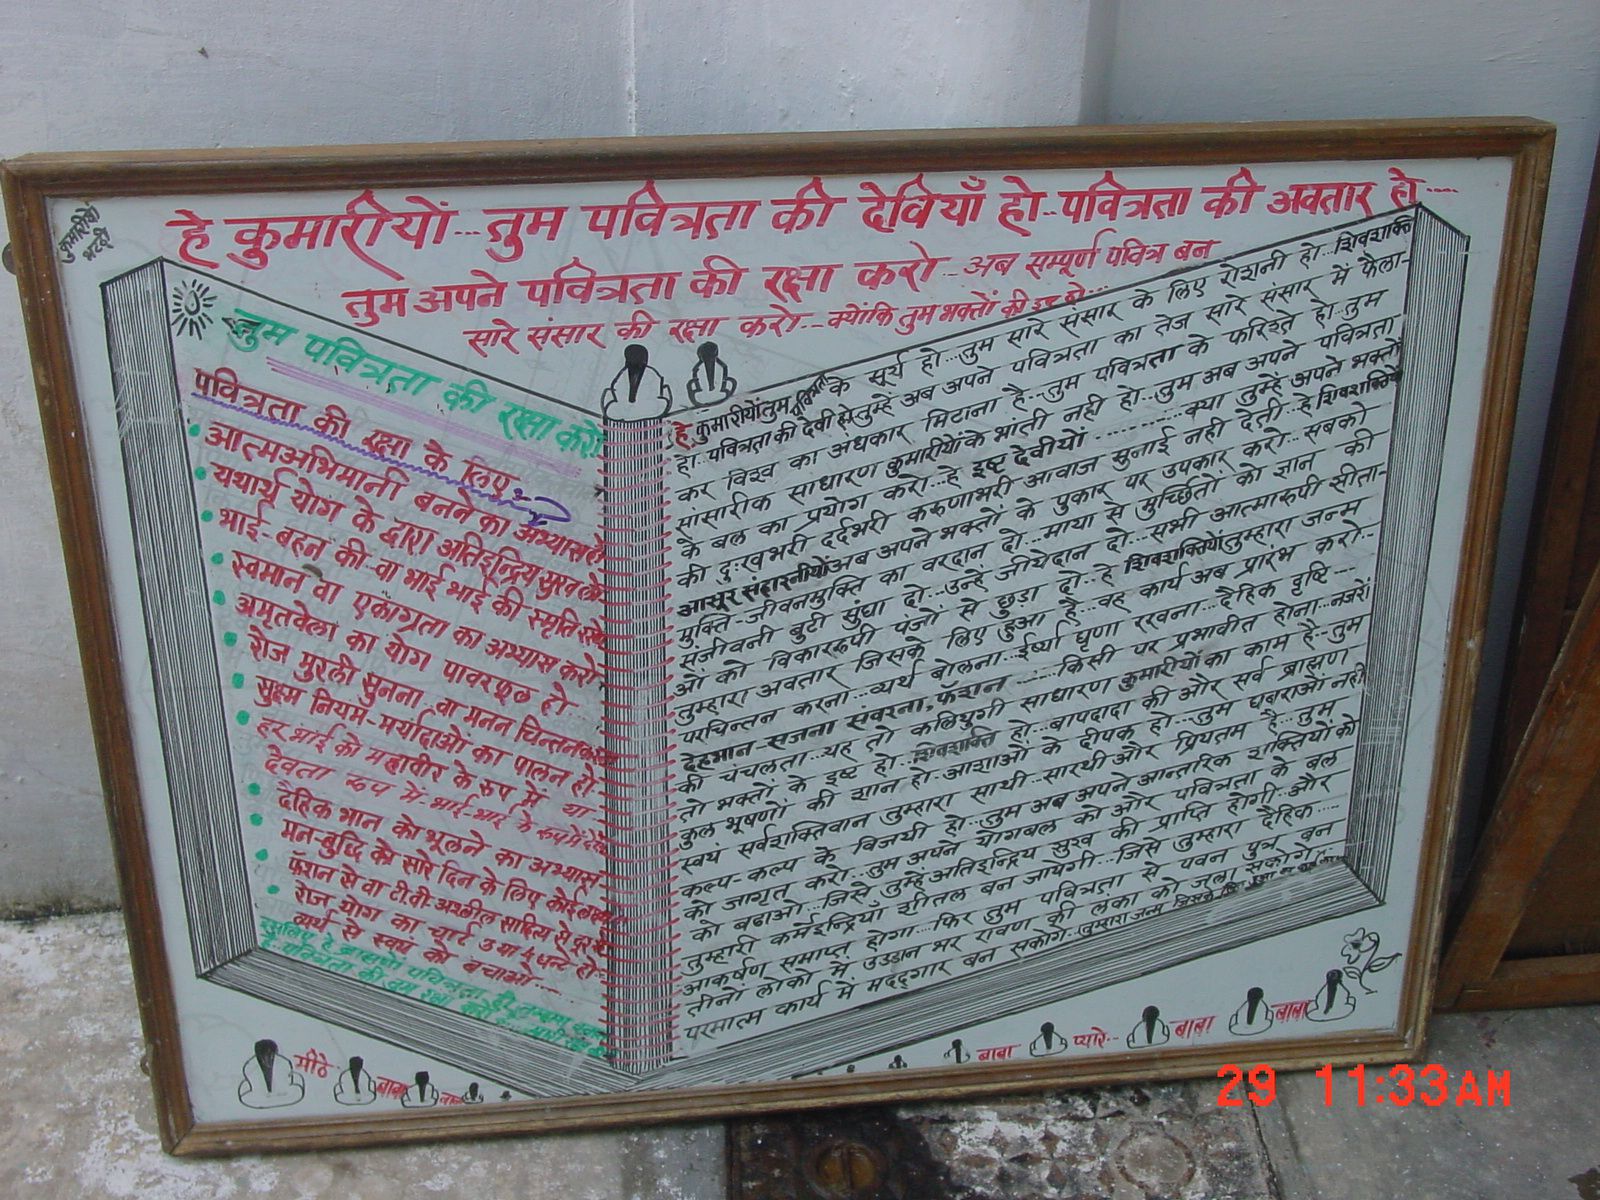 कुमारीयों की भट्टी
हे कुमारीयों... तुम पवित्रता की देवियाँ हो.. पवित्रता की अवतार हो....
तुम अपने पवित्रता की रक्षा करो... अब सम्पूर्ण पवित्र बन
सारे संसार की रक्षा करो... क्योंकि तुम भक्तों की इष्ट हो...
तुम पवित्रता की रक्षा करो
पवित्रता की रक्षा के लिए:-
आत्मअभिमानी बनने का अभ्यास हो
यथार्थ योग के द्वारा अतिइन्द्रिय सुख लो
भाई-बहन की वा भाई भाई की स्मृति
स्वमान वा एकाग्रता का अभ्यास करो
अमृतवेला का योग पावरफूल हो
रोज मुरली सुनना वा मनन चिन्तन
सुक्ष्म नियम-मर्यादाओं का पालन हो-
हर भाई को महावीर के रुप में या
देवता रूप में भाई-भाई के रूप में देखें
दैहिक भान को भूलने का अभ्यास-
मन-बुद्धि को सारे दिन के लिए कोई
फॅशन से वा टी.वी-अश्लील साहित्य से दूर
रोज योग का चार्ट 3 या 4 घन्टे हो
व्यर्थ से स्वयं को बचाओ....
हे कुमारीयों तुम के सूर्य हो...तुम सारे संसार के लिए रोशनी हो..शिवशक्ति
हो..पवित्रता की देवी हो तुम्हें अब अपने पवित्रता का तेज सारे संसार में फैला-
कर विश्व का अंधकार मिटाना है...तुम पवित्रता के फरिश्ते हो..तुम
सांसारीक साधारण कुमारीयों के भांती नही हो..तुम अब अपने पवित्रता
के बल का प्रयोग करो...हे इष्ट देवीयों ..........क्या तुम्हें अपने भक्तों
की दु:खभरी दर्दभरी करुणाभरी आवाज सुनाई नही देती..हे शिवशक्तियों
आसूर संहारनीयों अब अपने भक्तों के पुकार पर उपकार करो...सबको
मुक्ति-जीवनमुक्ति का वरदान दो...माया से मुर्च्छितों को ज्ञान की
संजीवनी बुटी सुंघा दो...उन्हें जीयेदान दो...सभी आत्मारुपी सीता-
ओं को विकाररुपी पंजों से छुड़ा दो..हे शिवशक्तियां तुम्हारा जन्म
तुम्हारा अवतार जिसके लिए हुआ है...वह कार्य अब प्रारंभ करो..
परचिन्तन करना...व्यर्थ बोलना...ईर्ष्या घृणा रखना...दैहिक दृष्टि....
देहभान-सजना संवरना, फॅशन .....किसी पर प्रभावीत होना...नजरों
की चंचलता...यह तो कलियुगी साधारण कुमारीयों का काम है...तुम
तो भक्तों के इष्ट हो..शिवशक्ति हो..बापदादा की और सर्व ब्राह्मण
कुल भूषणों की शान हो..आशाओं के दीपक हो...तुम घबराओं नही
स्वयं सर्वशक्तिवान तुम्हारा साथी...सारथी और प्रियतम है...तुम
कल्प-कल्प के विजयी हो...तुम अब अपने आन्तरिक शक्तियों को
को जागृत करो...तुम अपने योगबल को और पवित्रता के बल
को बढाओ..जिसे तुम्हें अतिइन्द्रिय सुख की प्राप्ति होगी..और
तुम्हारी कर्मेइन्द्रियाँ शीतल बन जायेगी...जिसे तुम्हारा दैहिक....
आकर्षण समाप्त होगा...फिर तुम पवित्रता से पवन पुत्र बन
तीनों लोको में उड्डान भर रावण की लंका को जला सकोगे..
परमात्म कार्य में मददगार बन सकोगे..तुम्हारा जन्म जिसके लिए हुआ
मीठे बाबा
बाबा प्यारे.. बाबा बाबा
29 11:33AM